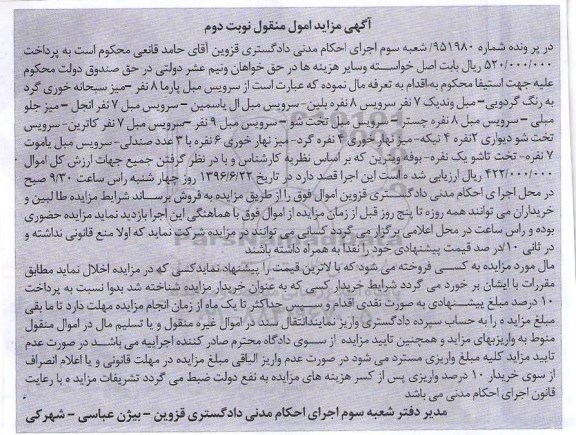 آگهی مزاید اموال منقول نوبت دوم
در پرونده شماره ۹۵۱۹۸۰/ شعبه سوم اجرای احکام مدنی دادگستری قزوین آقای حامد قانعی محکوم است به پرداخت
۵۲۰/۰۰۰/۰۰۰ ریال بابت اصل خواسته وسایر هزینه ها در حق خواهان ونیم عشر دولتی در حق صندوق دولت محکوم
علیه جهت استیفا محکوم به اقدام به تعرفه مال نموده که عبارت است از سرویس مبل پارما ۸ نفر –میز سبحانه خوری گرد
به رنگ گردویی– مبل وندیک ۷ نفر سرویس ۸ نفره پلین– سرویس مبل ال یاسمین – سرویس مبل ۷ نفر انجل – میز جلو
مبلی – سرویس مبل ۸ نفره چستر – سرویس مبل تخت شو – سرویس مبل ۹ نفر –سرویس مبل ۷ نفر کاترین– سرویس
تخت شو دیواری ۲نفره ۴ تیکه– میز نهار خوری ۴ نفره گرد–میز نهار خوری ۶ نفره با ۳ عدد صندلی– سرویس مبل یاموت
۷ نفره– تخت تاشو یک نفره–بوفه ویترین که بر اساس نظریه کارشناس و با در نظر گرفتن جمیع جهات ارزش کل اموال
۴۲۲/۰۰۰/۰۰۰ ریال ارزیابی شد ه است این اجرا قصد دارد در تاریخ ۱۳۹۶/۶/۲۲ روز چهار شنبه راس ساعت ۹/۳۰ صبح
در محل اجرا ی احکام مدنی دادگستری قزوین اموال فوق را از طریق مزایده به فروش برساند شرایط مزایده طا لبین و
خریداران می توانند همه روزه تا پنج روز قبل از زمان مزایده از اموال فوق با هماهنگی این اجرا بازدید نماید مزایده حضوری
بوده و راس ساعت در محل اعلامی برگزار می گردد کسانی می توانند در مزایده شرکت نماید که اولا منع قانونی نداشته و
در ثانی ۱۰/در صد قیمت پیشنهادی خود را نقدا به همراه داشته باشند
مال مورد مزایده به کسی فروخته می شود که با لاترین قیمت را پیشنهاد نماید کسی که در مزایده اخلال نماید مطابق
مقررات با ایشان بر خورد می گردد شرایط خریدار کسی که به عنوان خریدار مزایده شناخته شد بدوا نسبت به پرداخت
۱۰ درصد مبلغ پیشنهادی به صورت نقدی اقدام و سپس حداکثر تا یک ماه از زمان انجام مزایده مهلت دارد تا ما بقی
مبلغ مزاید ه را به حساب سپرده دادگستری واریز نماید انتقال سند در اموال غیره منقول و یا تسلیم مال در اموال منقول
منوط به واریزبهای مزاید و همچنین تایید مزایده از سوی دادگاه محترم صادر کننده اجراییه می باشد در صورت عدم
تایید مزاید کلیه مبلغ واریزی مسترد می شود در صورت عدم واریز الباقی مبلغ مزایده در مهلت قانونی و یا اعلام انصراف
از سوی خریدار ۱۰ درصد واریزی پس از کسر هزینه های مزایده به نفع دولت ضبط می گردد تشریفات مزاید ه با رعایت
قانون اجرای احکام مدنی می باشد
مدیر دفتر شعبه سوم اجرای احکام مدنی دادگستری قزوین – بیژن عباسی – شهرکی